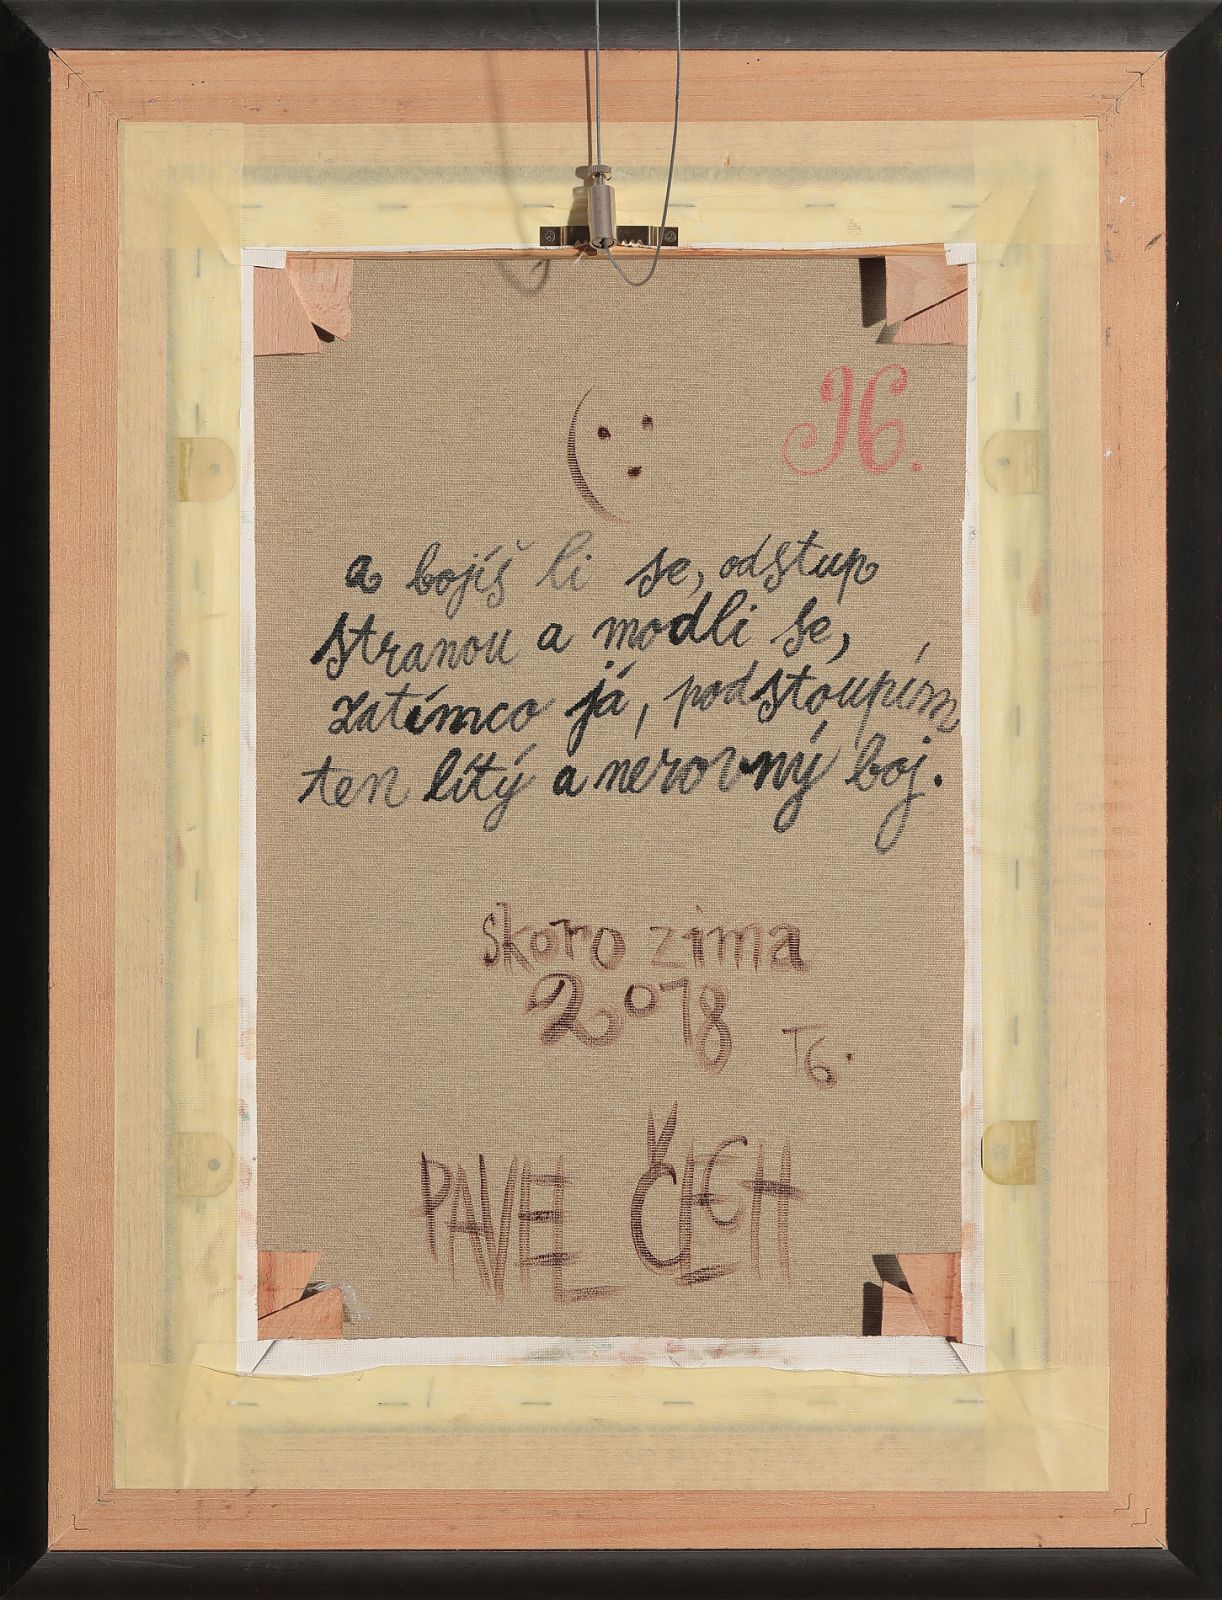 JC.
a bojíš li se, odstup
stranou a modli se,
zatímco já, podstoupím
ten lítý a nerovný boj.
skoro zima
2018
T6.
PAVEL ČECH